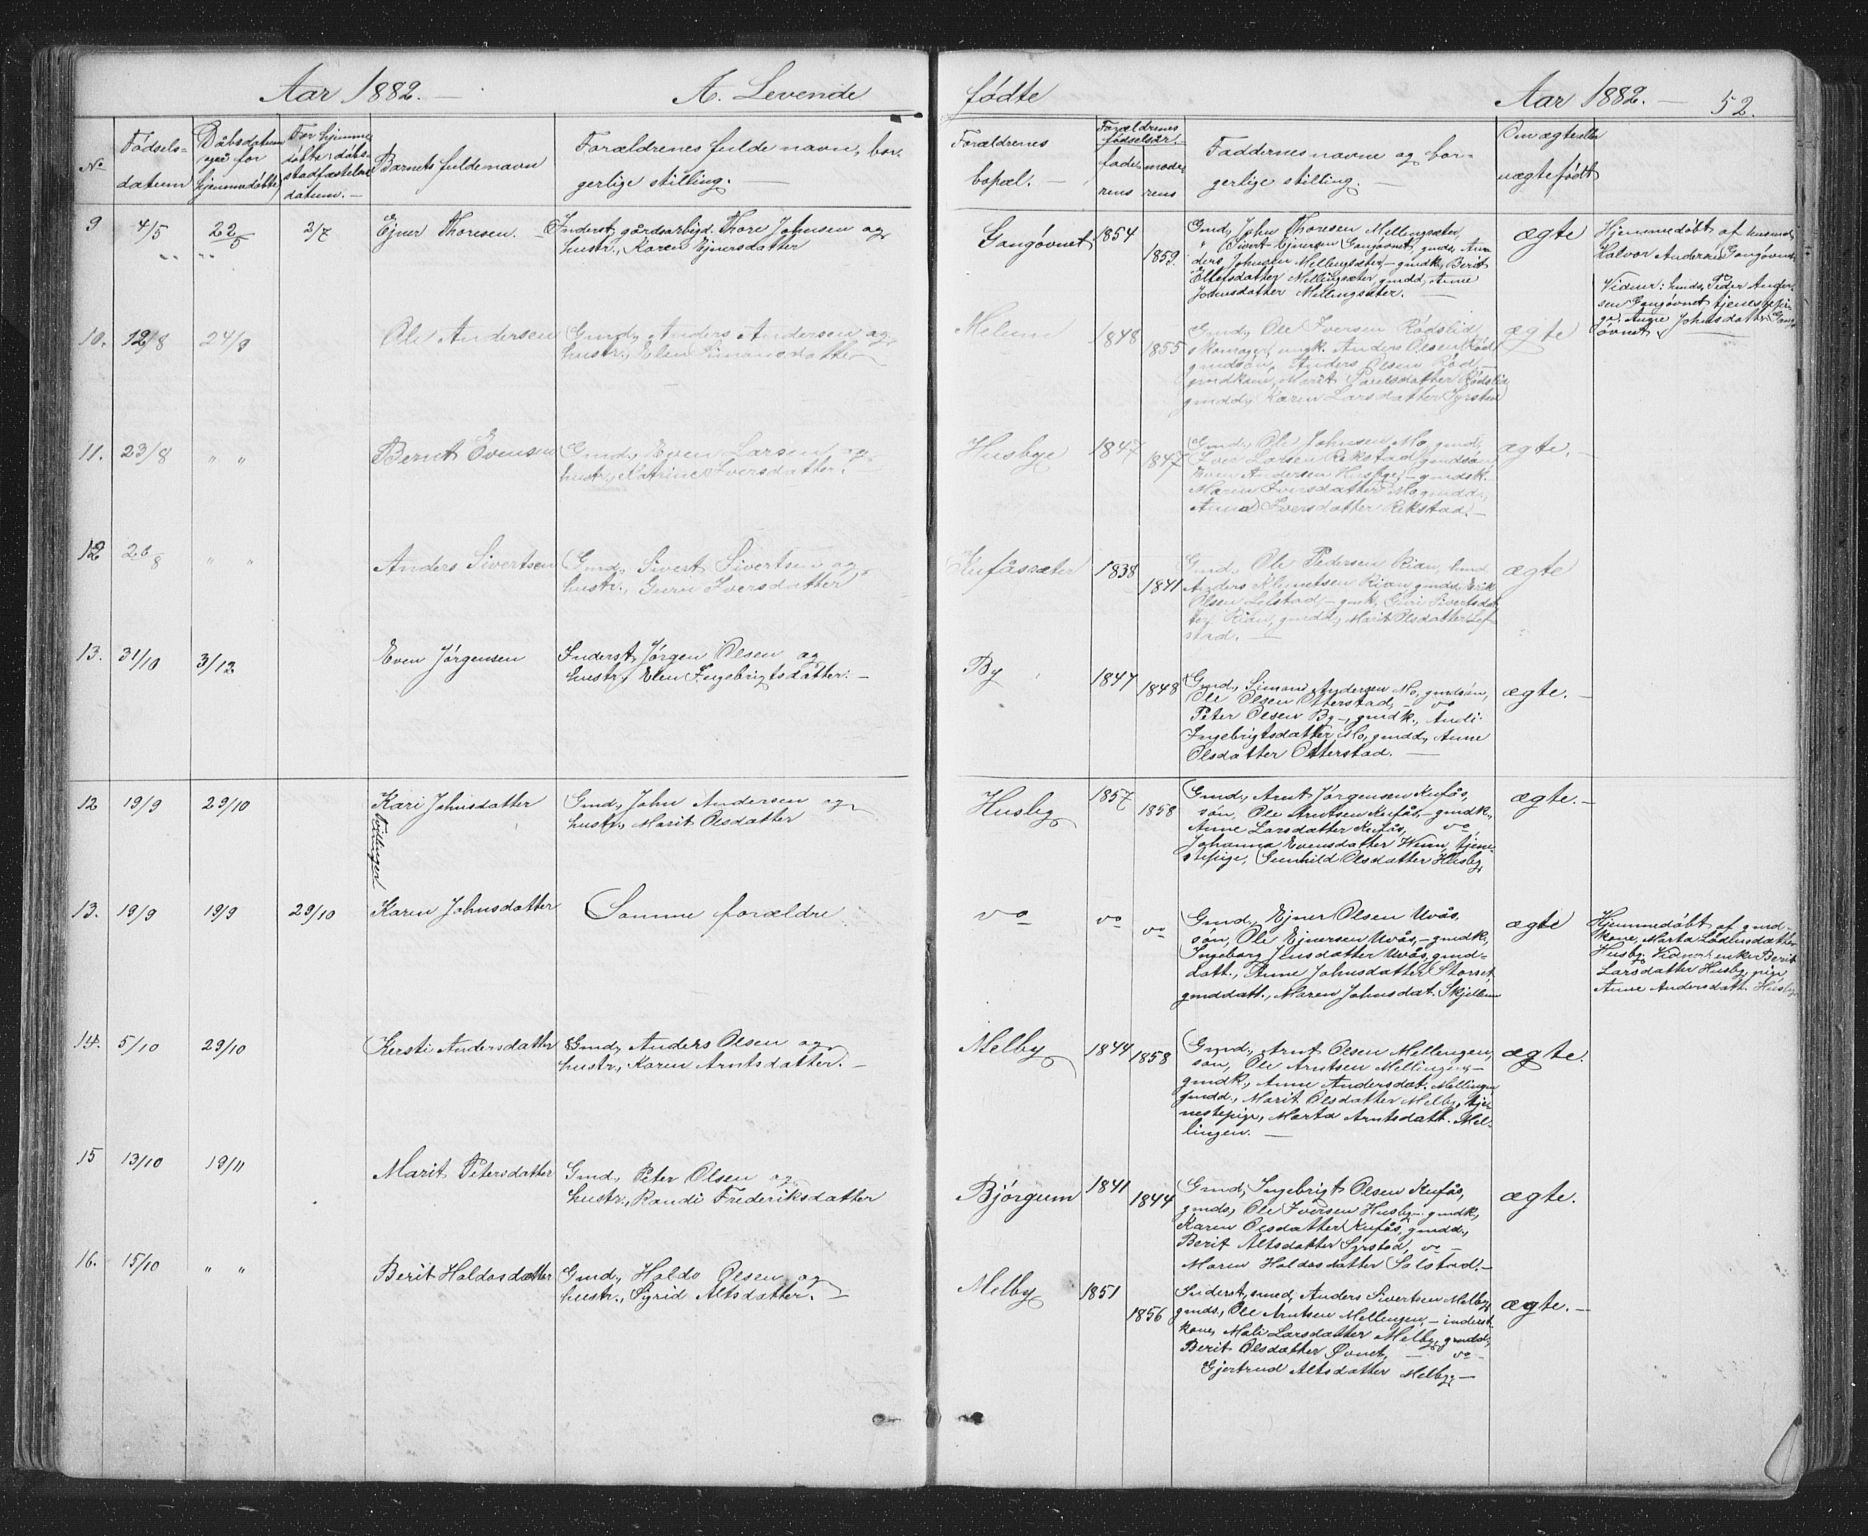 Aar 1882. —
A. Levende
fødte
Aar 1882. —
52.
No
Fødsels-
datum
Dåbsdatum
også for
hjemmedøbte
For hjemme
døbte: dåbs
stadfæstelses
datum. —
Barnets fulde navn
Forældrenes fulde navn, bor-
gerlige stilling. —
Forældrenes
bopæl. —
Forældrenes
fødselsår. —
fade-
rens
mode-
rens
Faddernes navne og bor-
gerlige stilling. —
Om ægte eller
uægte født
9
4/5
22/5
2/7
Ejner Thoresen. —
Inderst, gårdsarbejd. Thore Johnsen og
hustr., Karen Ejnersdatter
Gangøvnet
1854
1859.
Gmd, John Thoresen Mellingsæter,
" Sivert Ejnersen Gangøvnet, gmds, An-
ders Johnsen Mellingsæter, — gmdk, Berit
Mellingsæter, gmdd, Anne
Johnsdatter Mellingsæter. —
ægte
Hjemmedøbt af husmd
Halvor Andersen Gangøvnet
Vidner: husmd, Peder Ander-
sen Gangøvnet tjenestepi-
ge, Anne Johnsdatter Gang-
øvnet
10.
12/8
24/9
Ole Andersen
Gmd, Anders Andersen og
hustr., Elen Simonsdatter
Melum
1848
1855
Gmd, Ole Iversen Rødslid
skomager, ungk. Anders Olsen Rød
gmdsøn, Anders Olsen Rød, —
gmdkone, Marit Rødslid
gmdd, Karen Larsdatter Syrstad
ægte
11.
23/8
" "
Bernt Evensen
Gmd, Even Larsen og
hustr., Katrine Iversdatter.
Husbye
1847
1847
Gmd, Ole Johnsen Mo, gmd,
Iver Larsen Rekstad, gmdsøn
Even Andersen Husbye, — gmdsk.
Maren Iversdatter Mo, gmdd,
Anne Iversdatter Rekstad. —
ægte. —
12
26/8
" "
Anders Sivertsen
Gmd, Sivert Sivertsen og
hustr., Guru Iversdatter
Kufåssæter
1838
1841
Gmd, Ole Pedersen Rian,
Anders Klemetsen Rian, gmdd, Erik
Olsen Lefstad, — gmk, Guri Sivertsdat-
ter Rian, gmdd, Marit Olsdatter Lef-
stad. —
ægte
13.
31/10
3/12
Even Jørgensen
Inderst, Jørgen Olsen og
hustr, Elen Ingebrigtsdatter. —
By
1847
1848
Gmd, Simon Andersen Mo, gmdsøn,
Ole Olsen Otterstad, — do
Peter Olsen By, — gmdk, Andi-
Ingebrigtsdatter Mo, gmdd, Anne
Olsdatter Otterstad. —
ægte. —
12
19/9
29/10
Kari Johnsdatter
Tvillinger
Gmd, John Andersen og
hustr., Marit Olsdatter
Husby
1857
1858
Gmd, Arnt Jørgensen Kufås,
søn, Ole Arntsen Kufås, — gmdk,
Anne Larsdatter Kufås, do
Johanna Evensdatter Wuin, tjene-
stepige, Gunhild Olsdatter Husby
ægte. —
13.
19/9
19/9
29/10
Karen Johnsdatter
Samme forældre
do
do
do
Gmd, Ejner Olsen Uvås,
søn, Ole Ejnersen Uvås, — gmdk,
Ingeborg Jensdatter Uvås, gmd-
datt., Anne Johnsdatter Storset,
gmddatt., Maren Johnsdat. Skjellum
ægte
Hjemmedøbt af gmd-
kone, Marta
Husby. Vidner: enke Berit
Larsdatter Husby, pige
Anne Andersdatt. Husby
14.
5/10
29/10
Kersti Andersdatter
Gmd, Anders Olsen og
hustr., Karen Arntsdatter. —
Melby
1844
1858
Gmd, Arnt Olsen Mellingen,
søn, Ole Arntsen Mellingen, —
gmdk, Anne Andersdat. Mellingen
gmdd., Marit Olsdatter Melby, tje-
nestepige, Marta Arntsdatt. Mel-
lingen. —
ægte.
15
13/10
19/11
Marit Petersdatter
Gmd, Peter Olsen og
hustr., Randi Frederiksdatter
Bjørgum
1841
1844
Gmd, Ingebrigt Olsen Kufås,
gmds, Ole Iversen Husby, gmdk,
Karen Olsdatter Kufås, gmdd,
Berit Altsdatter Syrstad, do —
Maren Haldosdatter Solstad. —
ægte.
16.
15/10
" "
Berit Haldosdatter
Gmd, Haldo Olsen og
hustr., Sigrid Altsdatter. —
Melby
1851
1856
Inderst, smed, Anders Sivertsen Melby
gmds, Ole Arntsen Mellingen, — inderst-
kone, Mali Larsdatter Melby, gmdd,
Berit Olsdatter Øvnet, — do —
Gjertrud Altsdatter Melby —
ægte. —